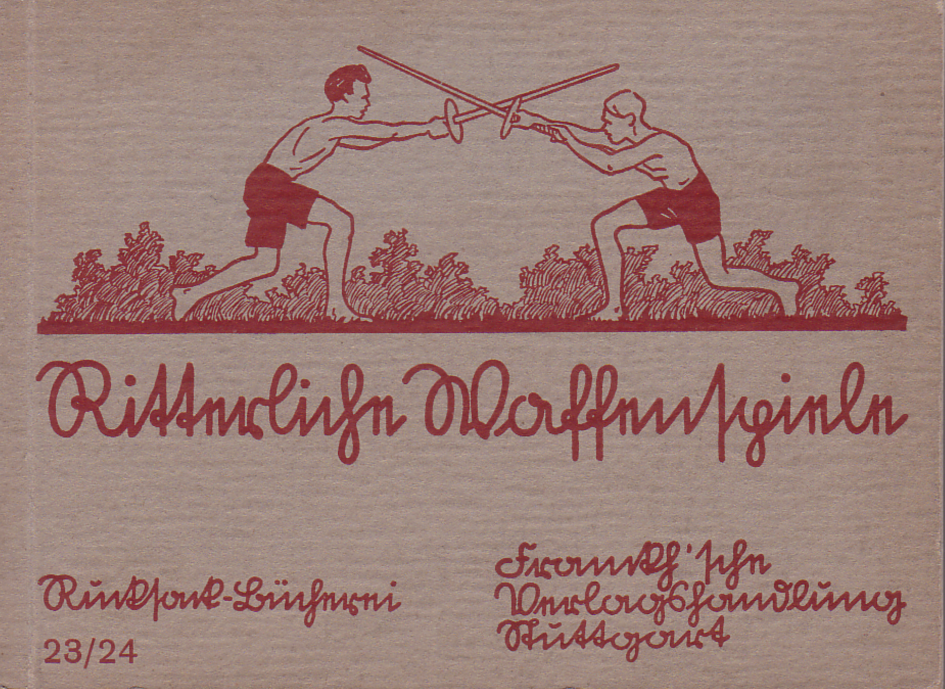 Ritterliche Waffenspiele
Rucksack-Bücherei
23/24
Franckh'sche
Verlagshandlung
Stuttgart